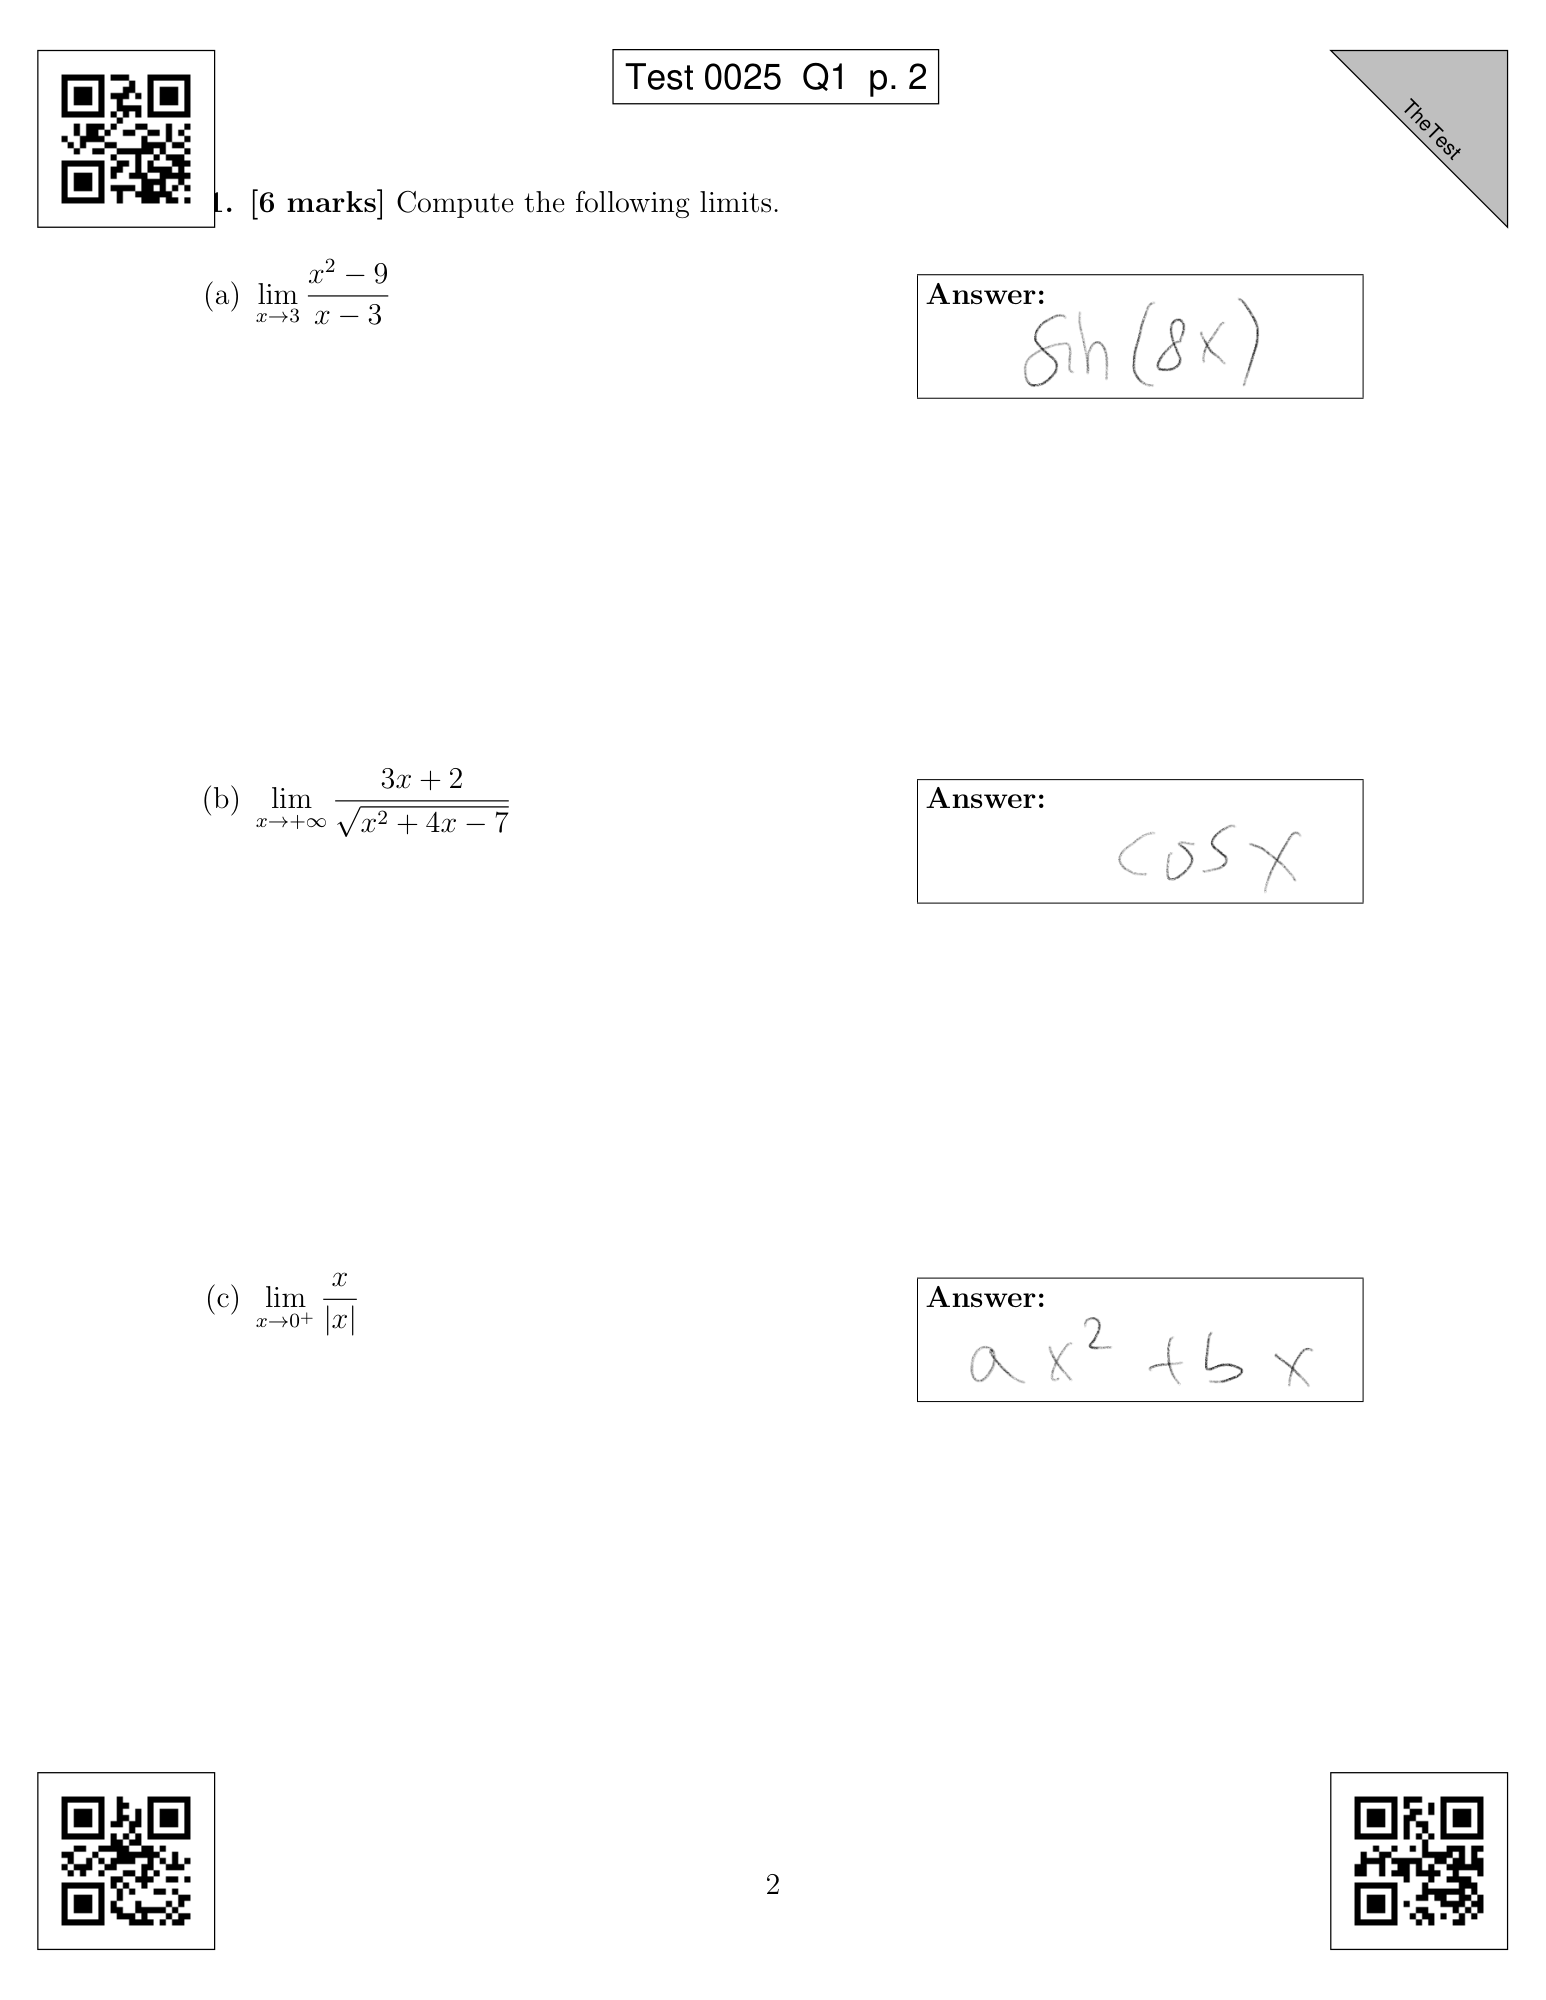 Test 0025 Q1 p. 2
TheTest
1. [6 marks] Compute the following limits.
(a) lim x→3 (x² − 9)/(x − 3)
Answer:
sin(8x)
(b) lim x→+∞ (3x + 2)/√(x² + 4x − 7)
Answer:
cos x
(c) lim x→0⁺ x/|x|
Answer:
ax² + bx
2